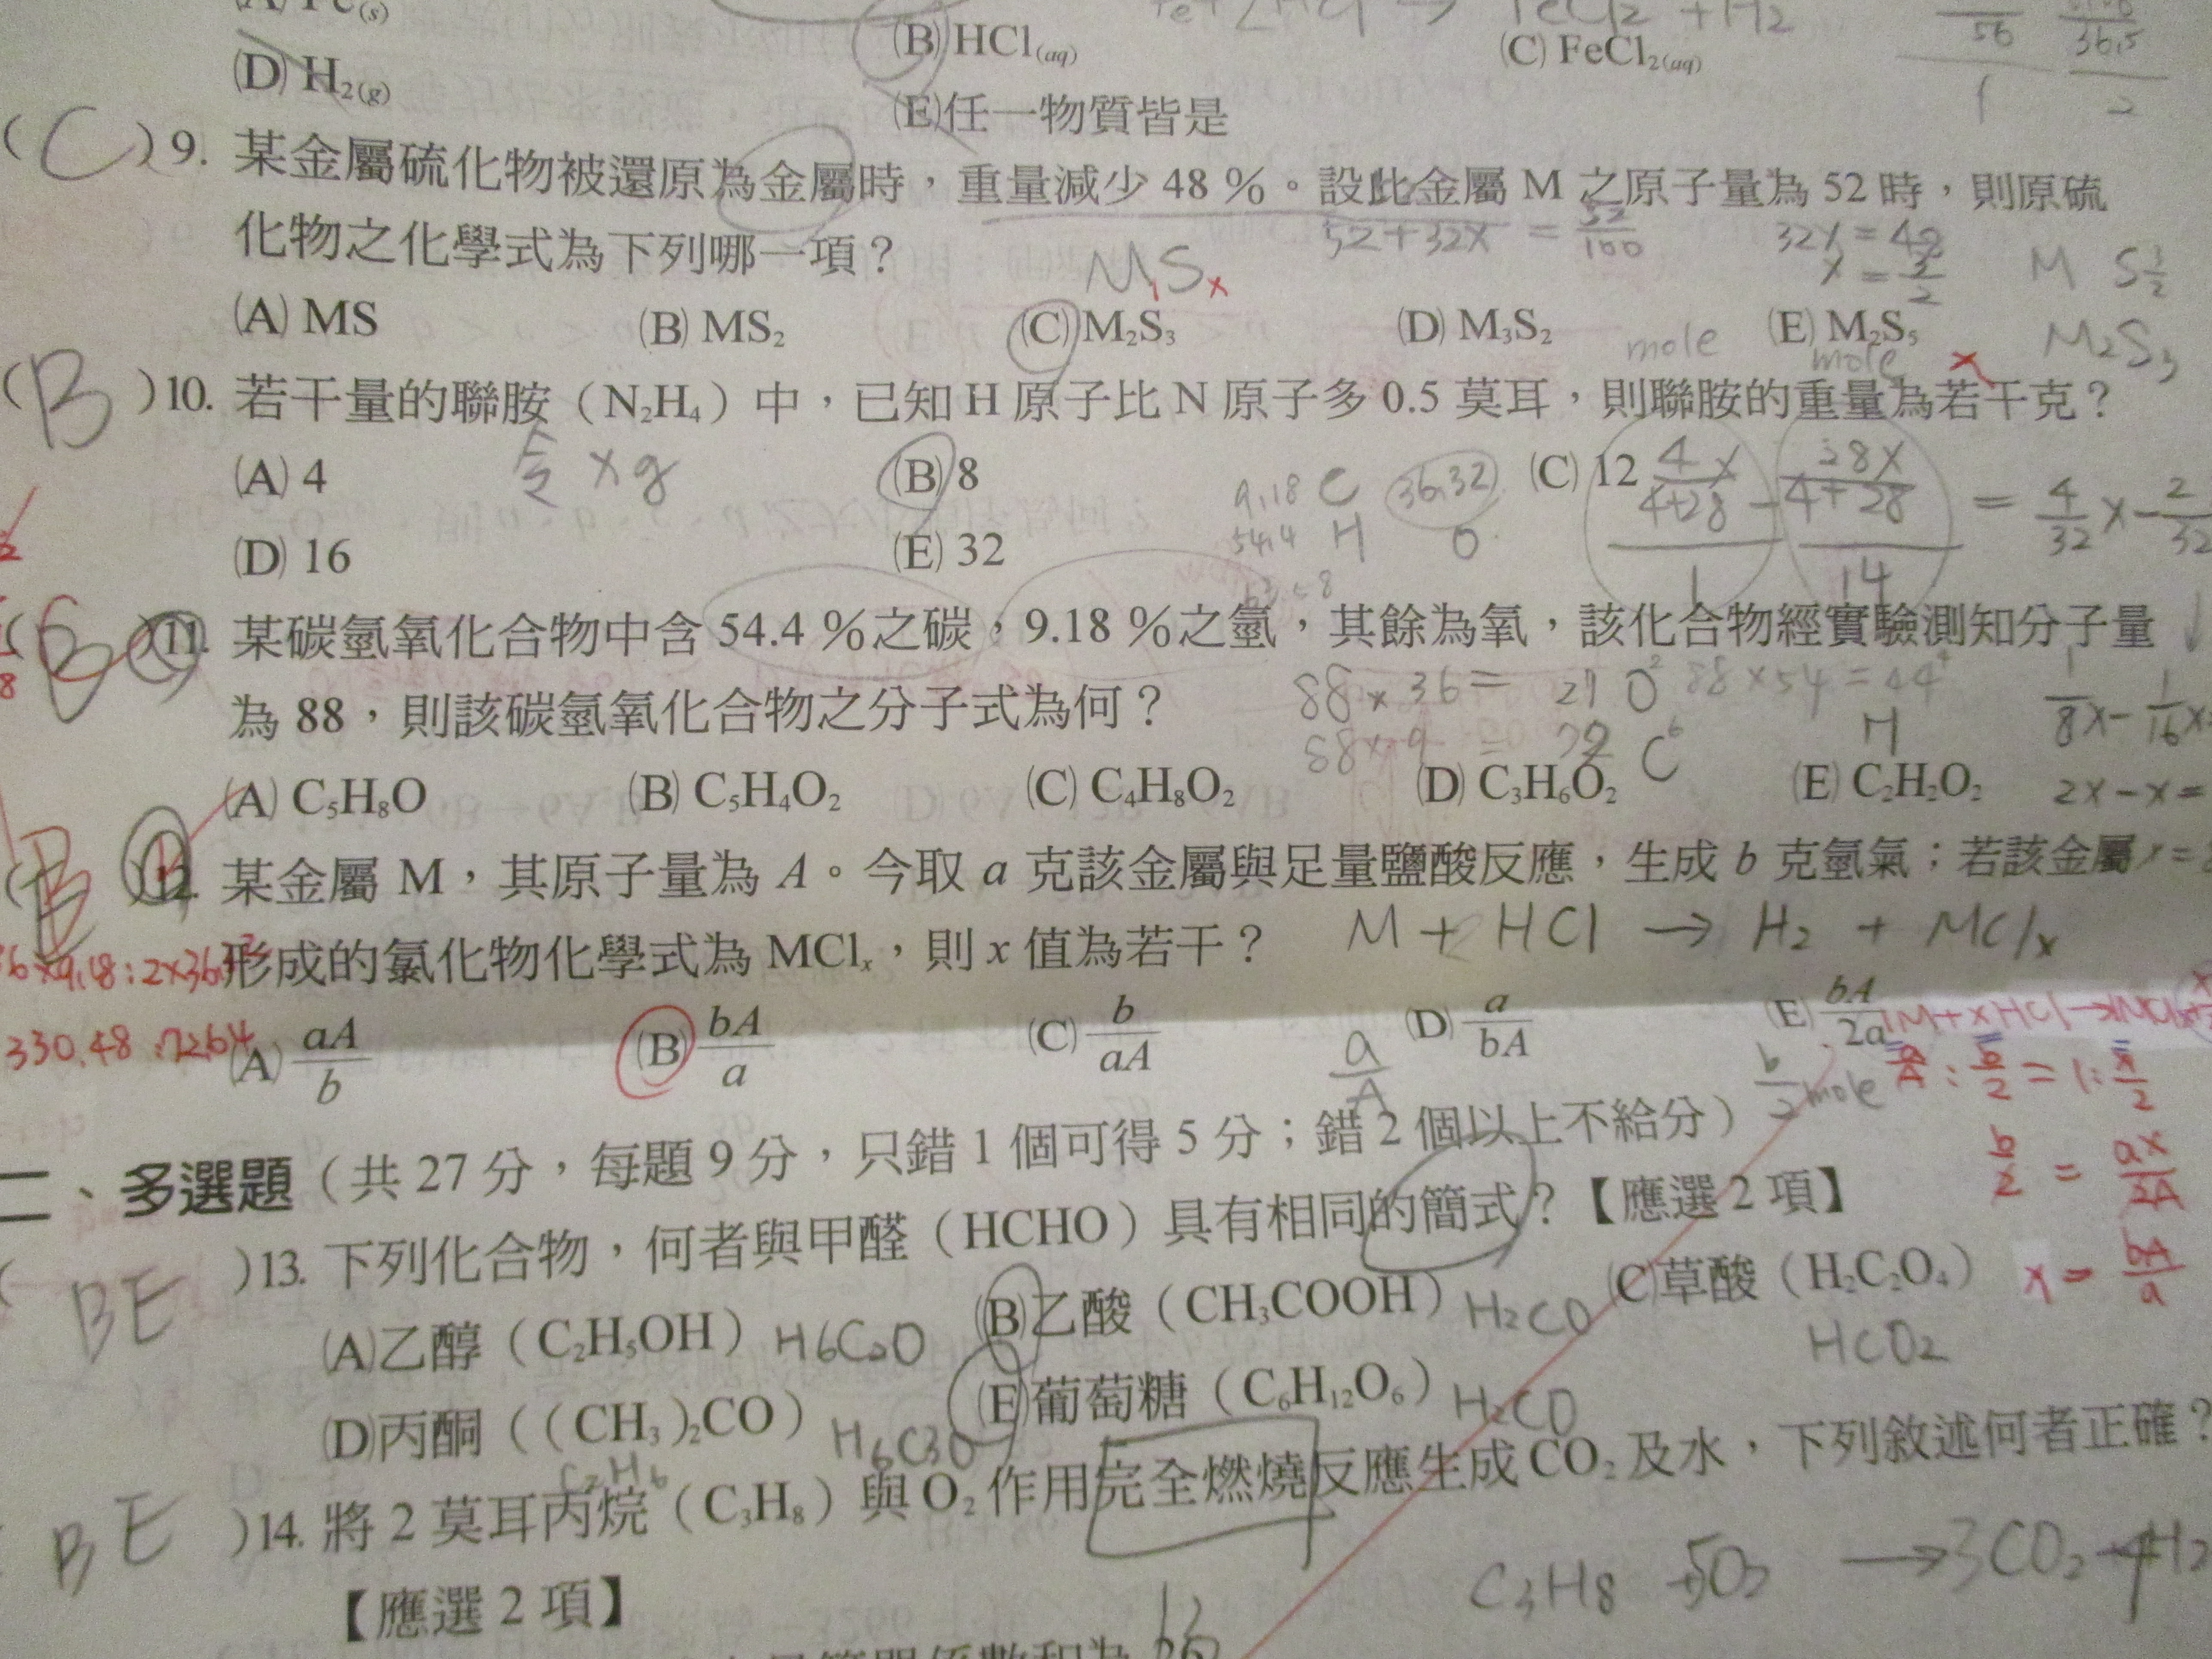 (B) HCl(aq)
(C) FeCl₂(aq)
(D) H₂(g)
(E)任一物質皆是
( C )9. 某金屬硫化物被還原為金屬時，重量減少 48 %。設此金屬 M 之原子量為 52 時，則原硫
化物之化學式為下列哪一項？
52+32x = 52/100
32x = 48
x = 3/2
M₁Sₓ
M S 3/2
M₂S₃
(A) MS (B) MS₂ (C) M₂S₃ (D) M₃S₂ (E) M₂S₅
mole mole
( B )10. 若干量的聯胺（N₂H₄）中，已知 H 原子比 N 原子多 0.5 莫耳，則聯胺的重量為若干克？
令 x g
(A) 4 (B) 8 (C) 12
(D) 16 (E) 32
9.18 C 36.32
54.4 H O
11. 某碳氫氧化合物中含 54.4 %之碳，9.18 %之氫，其餘為氧，該化合物經實驗測知分子量
為 88，則該碳氫氧化合物之分子式為何？
(A) C₅H₈O (B) C₅H₄O₂ (C) C₄H₈O₂ (D) C₃H₆O₂ (E) C₂H₂O₂
12. 某金屬 M，其原子量為 A。今取 a 克該金屬與足量鹽酸反應，生成 b 克氫氣；若該金屬
形成的氯化物化學式為 MClₓ，則 x 值為若干？
M + HCl → H₂ + MClₓ
(A) aA/b (B) bA/a (C) b/aA (D) a/bA (E) bA/2a
a/A b/2 mole
a/A : b/2 = 1 : x/2
b/2 = ax/2A
x = bA/a
二、多選題（共 27 分，每題 9 分，只錯 1 個可得 5 分；錯 2 個以上不給分）
( BE )13. 下列化合物，何者與甲醛（HCHO）具有相同的簡式？【應選 2 項】
(A)乙醇（C₂H₅OH） H6C2O (B)乙酸（CH₃COOH） H2CO (C)草酸（H₂C₂O₄）
HCO2
(D)丙酮（(CH₃)₂CO） H6C3O (E)葡萄糖（C₆H₁₂O₆） H2CO
( BE )14. 將 2 莫耳丙烷（C₃H₈）與 O₂ 作用完全燃燒反應生成 CO₂ 及水，下列敘述何者正確？
【應選 2 項】